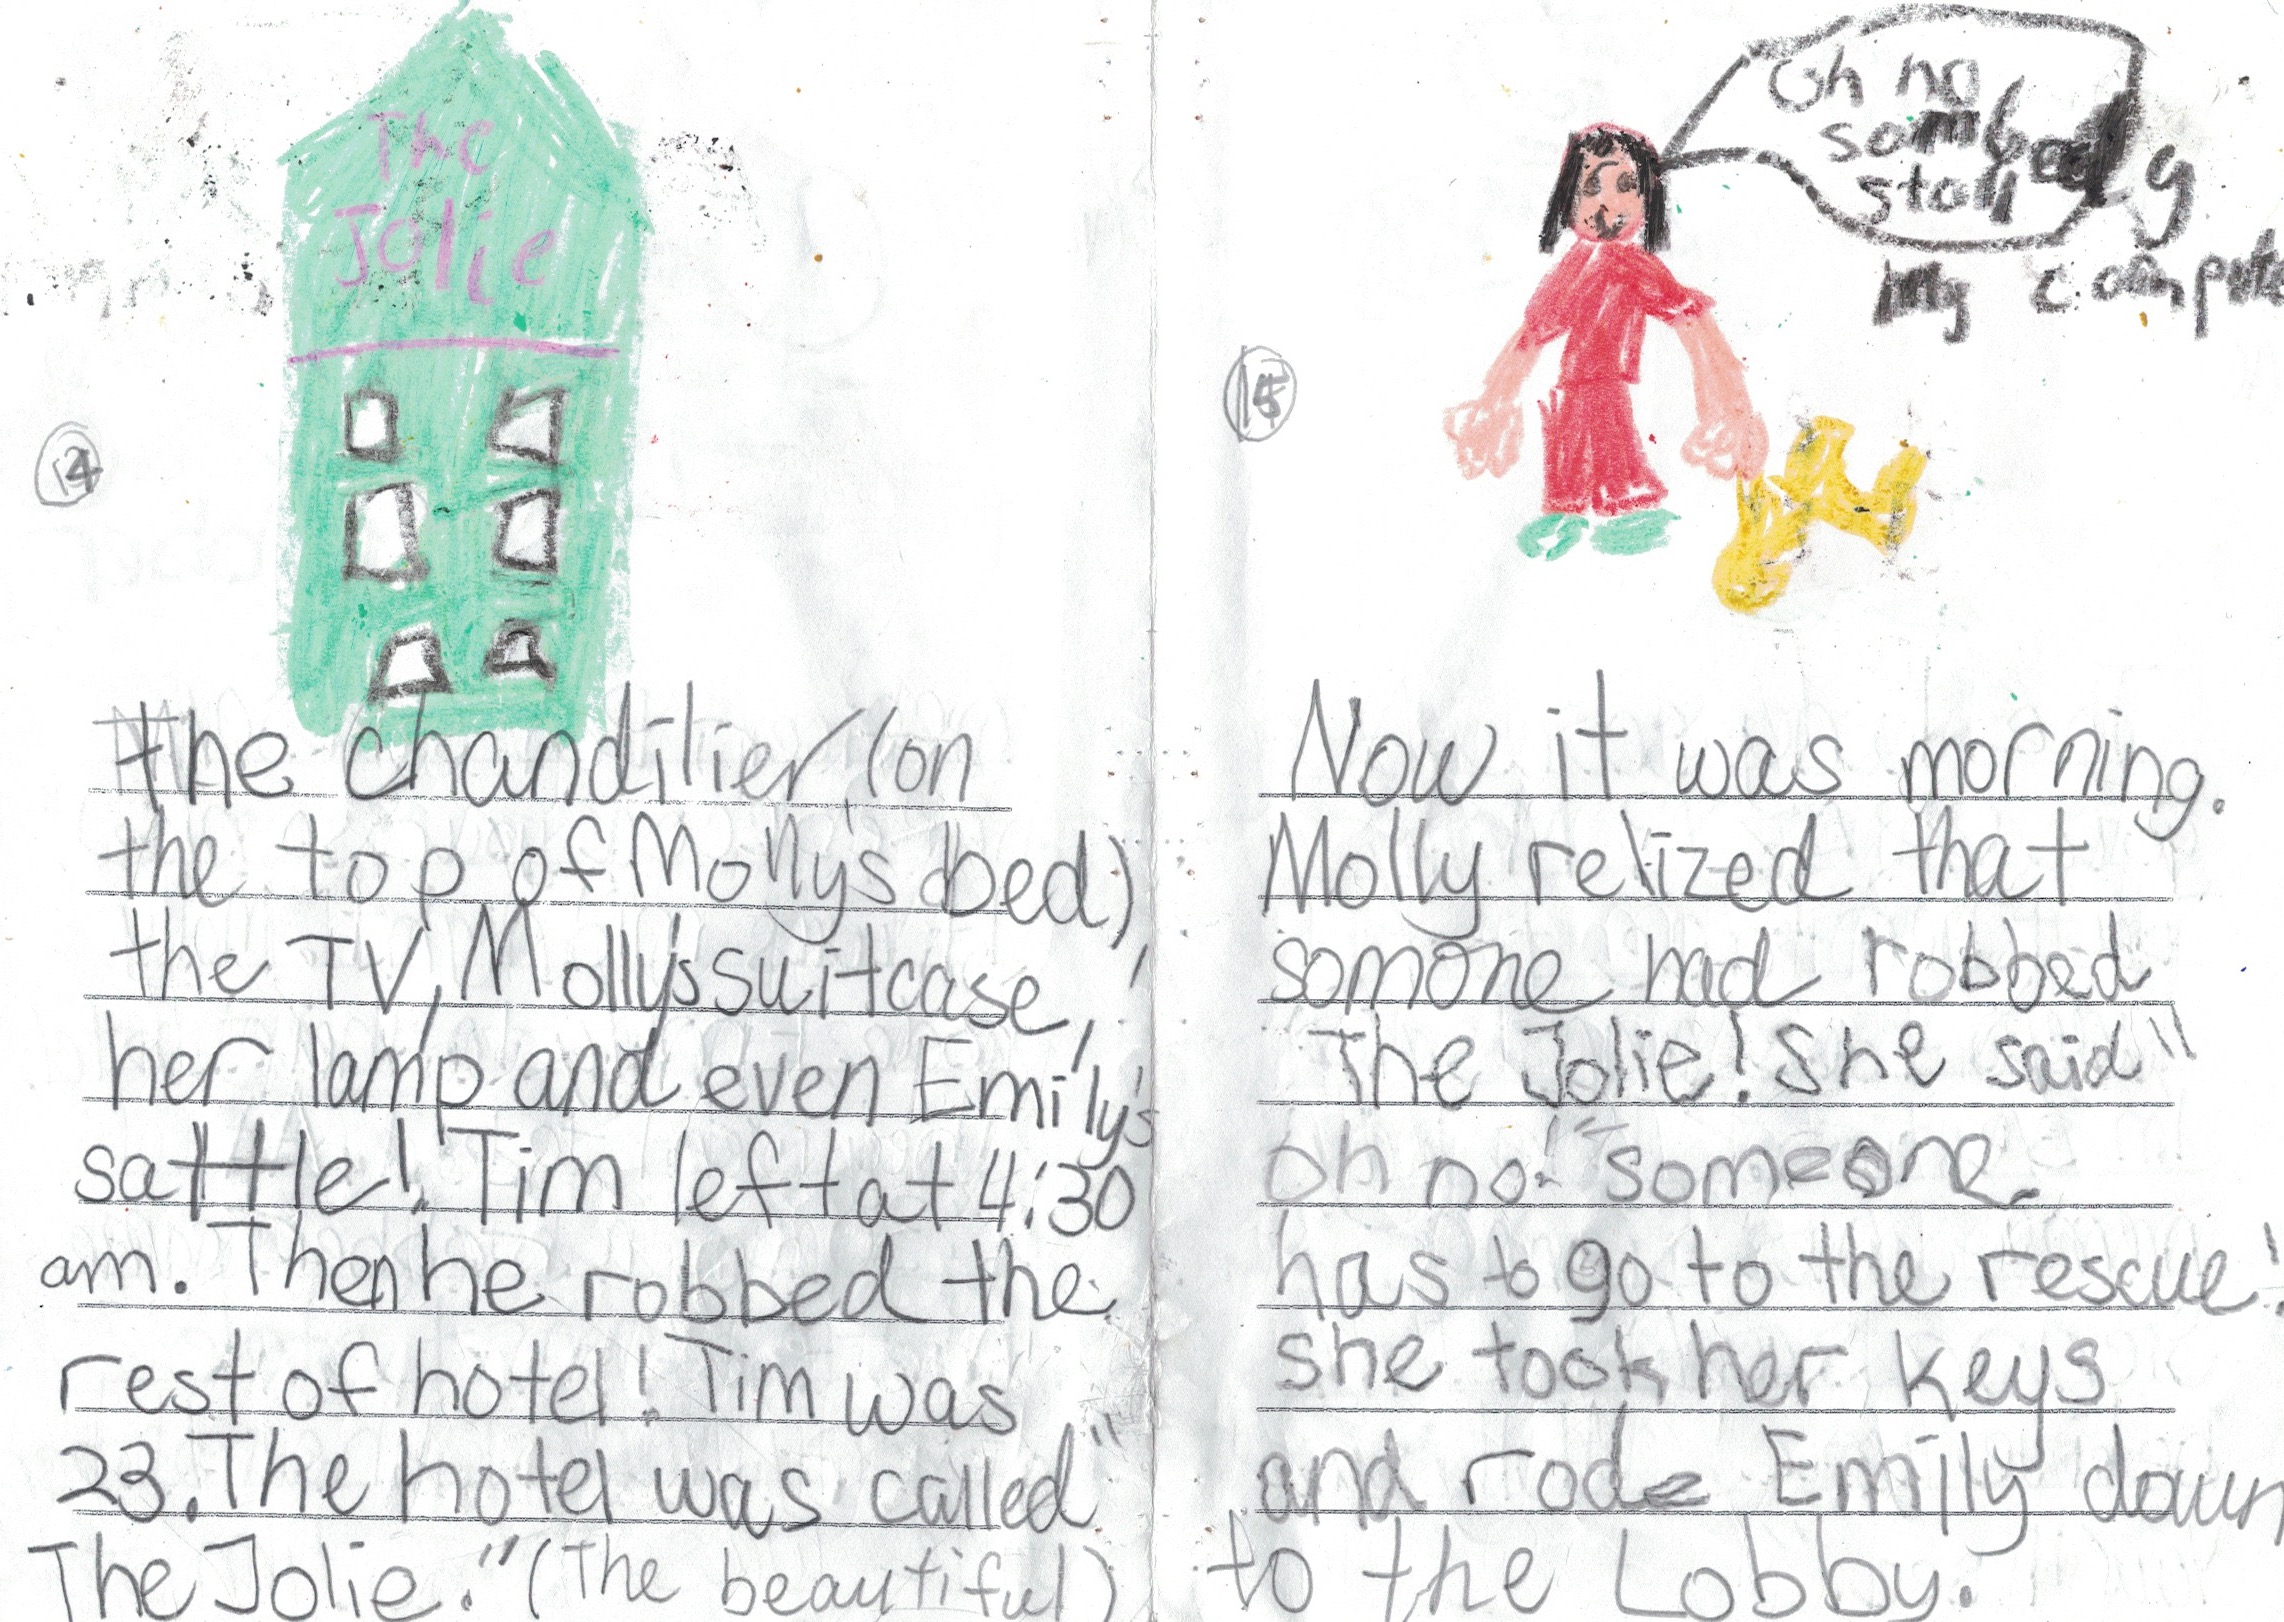 The
Jolie
14
the chandilier (on
the top of Molly's bed),
the TV, Molly's suitcase,
her lamp and even Emily's
sattle! Tim left at 4:30
am. Then he robbed the
rest of hotel! Tim was
23. The hotel was called "
The Jolie." (The beautiful)
Oh no
sombody
stoll
my compute
15
Now it was morning.
Molly relized that
somone had robbed
The Jolie! She said "
oh no." someone
has to go to the rescue!
she took her keys
and rode Emily down
to the Lobby.